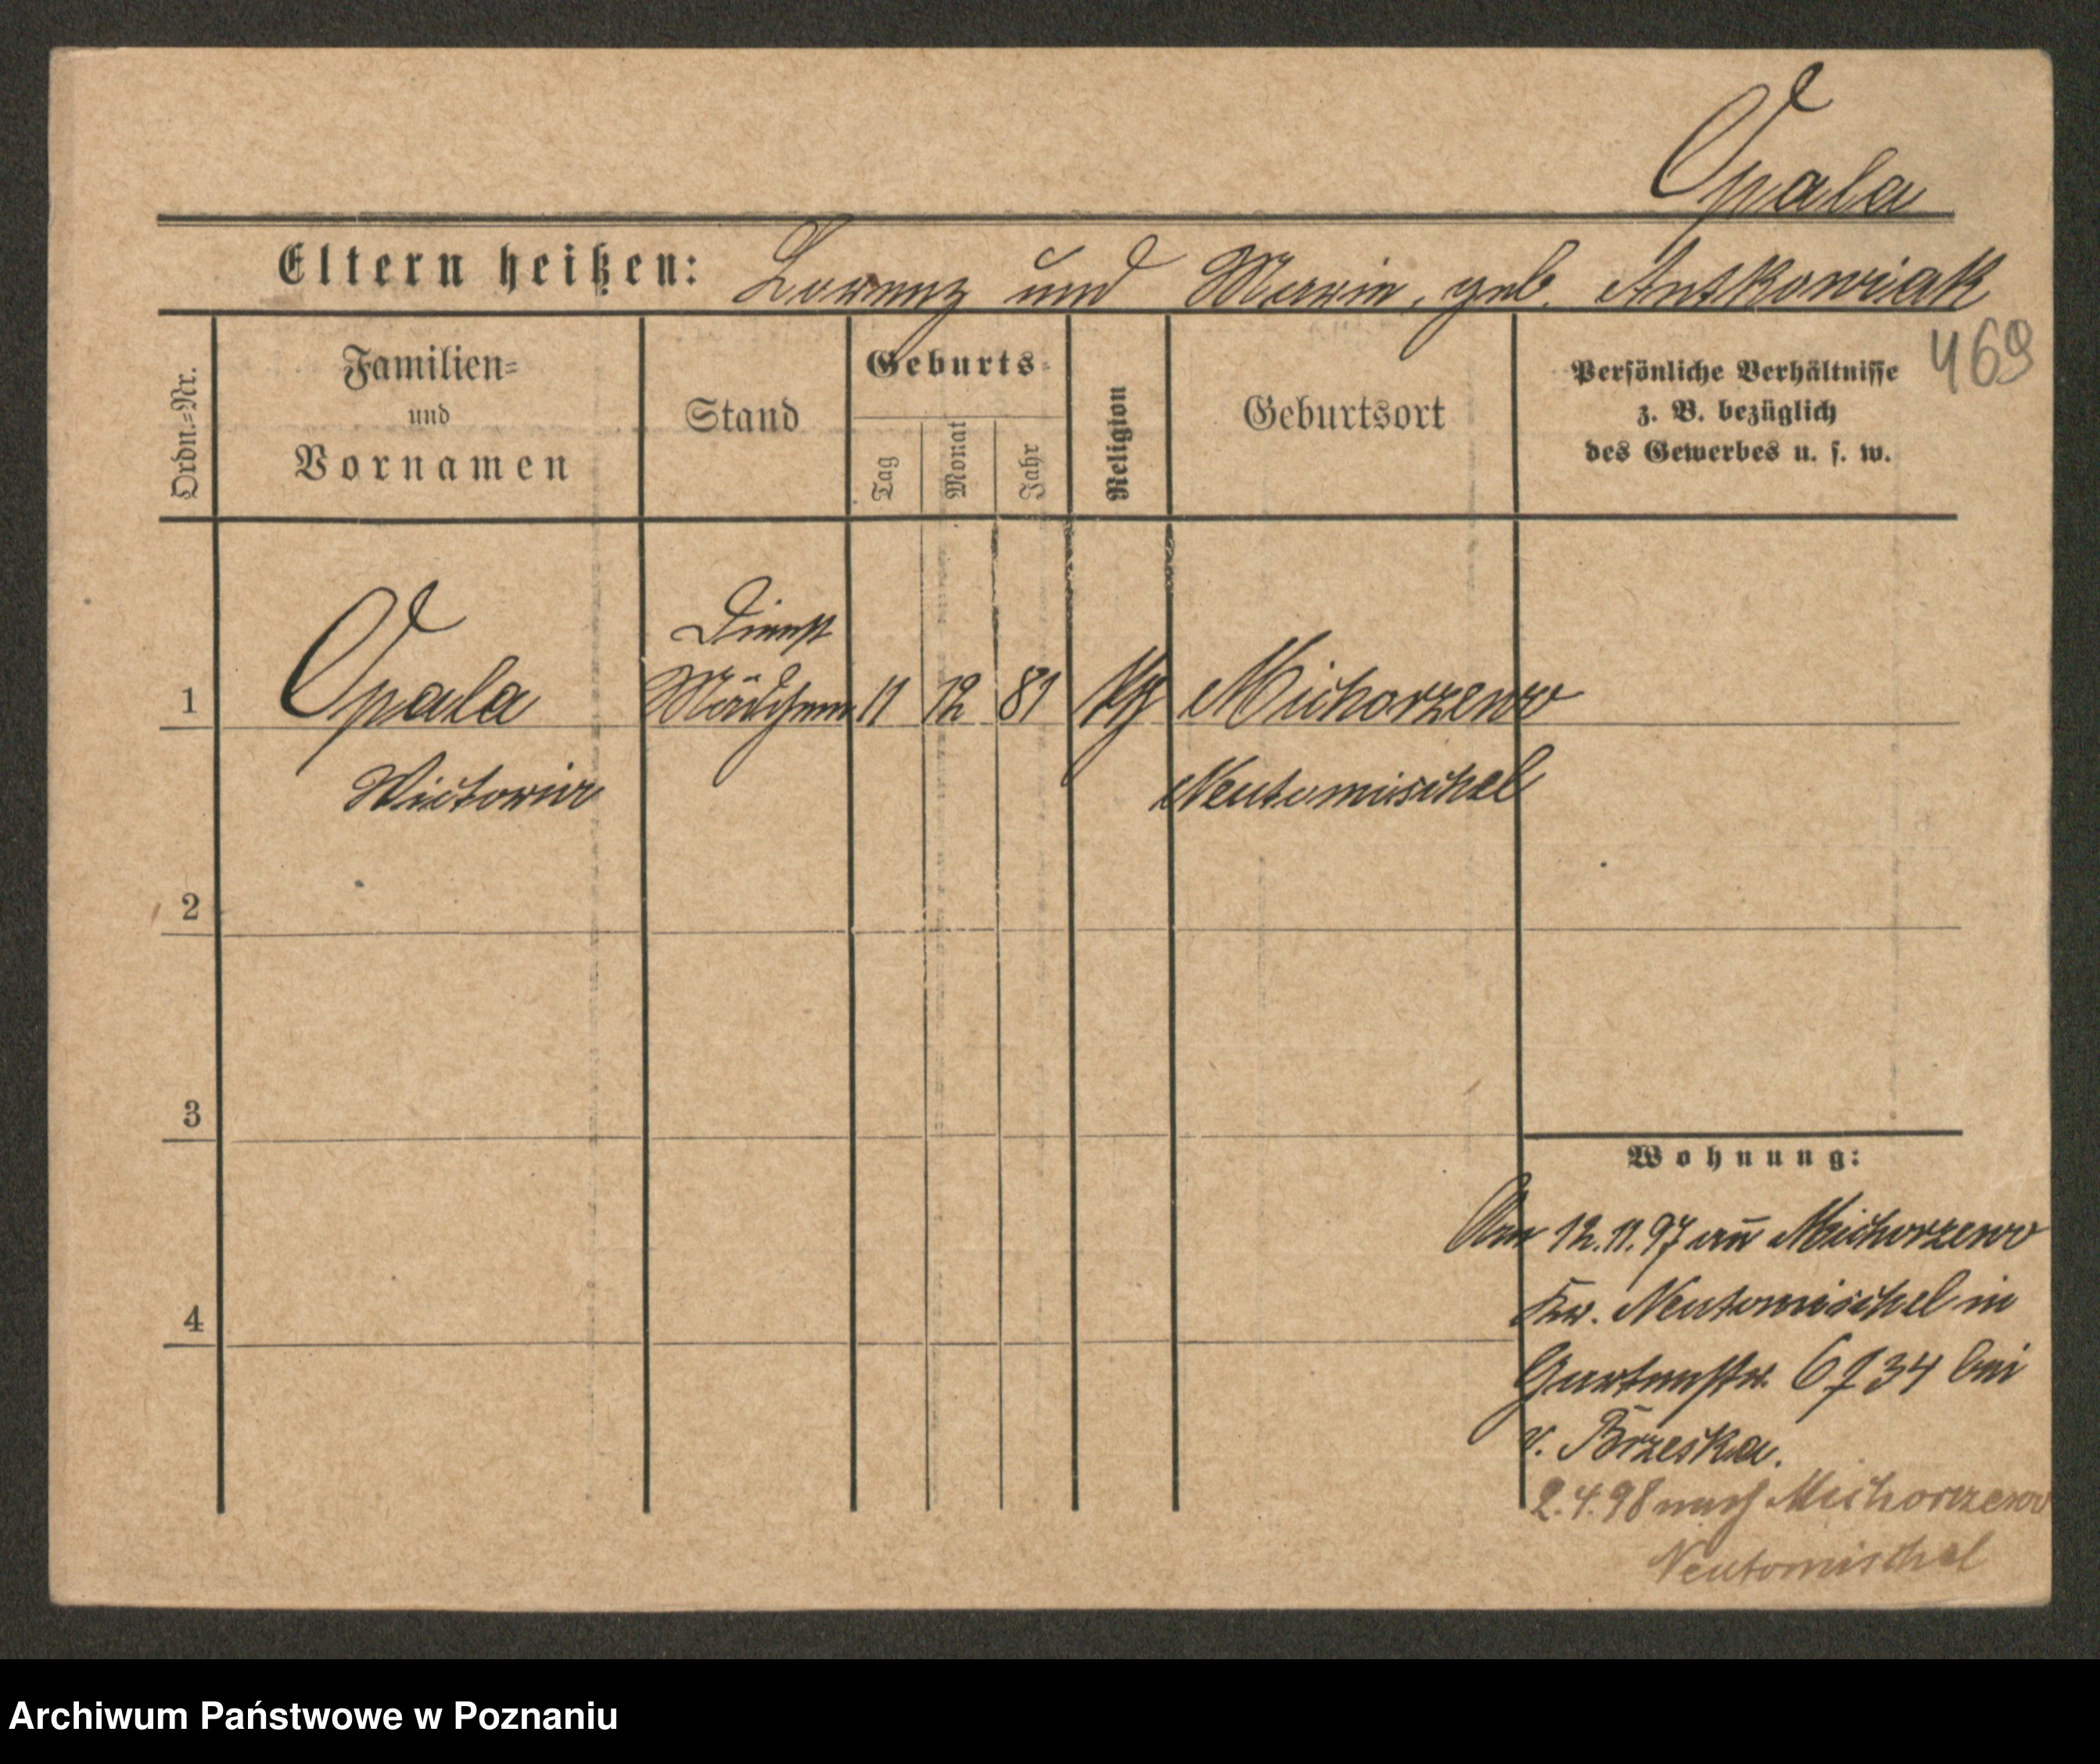 Opala
Eltern heißen: Lorenz und Marie, geb. Antkowiak
469
Ordn.=Nr.
Familien=
und
Vornamen
Stand
Geburts=
Tag
Monat
Jahr
Religion
Geburtsort
Persönliche Verhältnisse
z. B. bezüglich
des Gewerbes u. s. w.
Dienst
1 Opala Mädchen 11 12 81 Michorzewo
Victoria Neutomischel
2
3
4
Wohnung:
Am 12.11.97 au Michorzewo
Kr. Neutomischel in
Gartenstr. 6 34 bei
v. Brzeska.
2.4.98 nach Michorzewo
Neutomischel
Archiwum Państwowe w Poznaniu